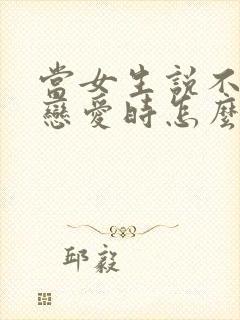 當女生說不
戀愛時怎麼
邱毅